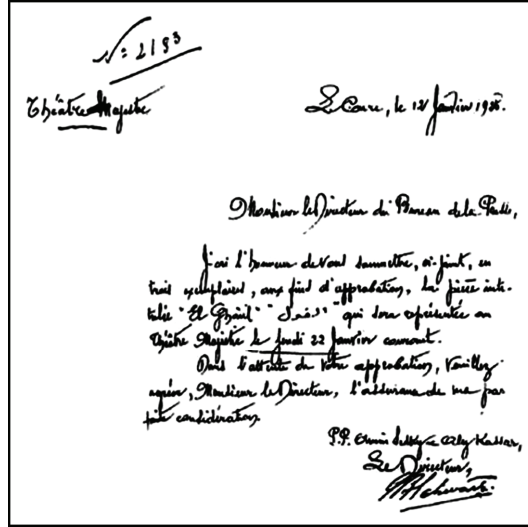 N: 2193
Théâtre Majestic
Le Caire, le 12 Janvier 192
Monsieur le Directeur du Bureau de la Presse,
J'ai l'honneur de vous soumettre, ci-joint, en
trois exemplaires, aux fins d'approbation, la pièce inti-
tulée "El " " qui sera représentée au
Théâtre Majestic le jeudi 22 Janvier courant.
Dans l'attente de votre approbation, veuillez
agréer, Monsieur le Directeur, l'assurance de ma par
faite considération.
P.P. Amin Sedky & Aly Kassar,
Le Directeur,